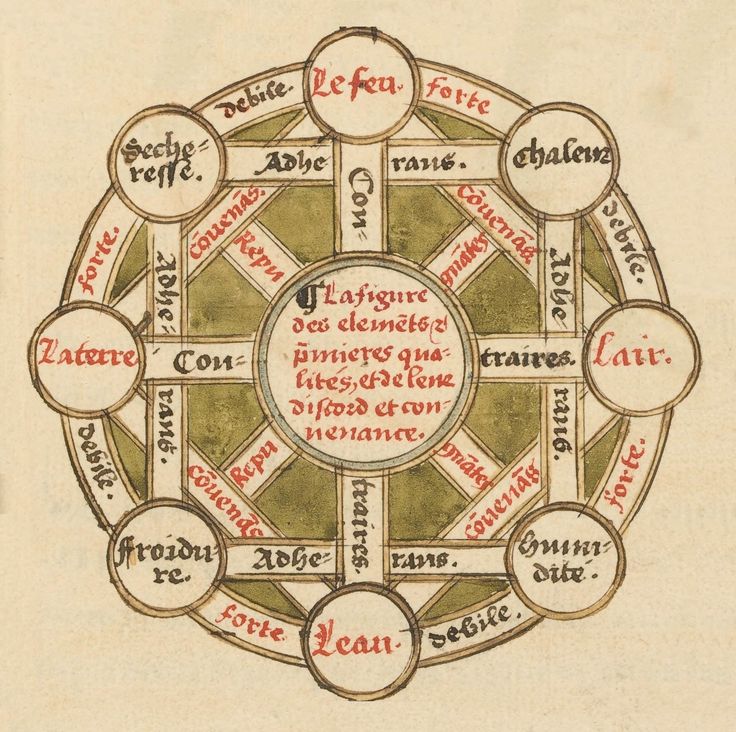 Le feu.
debile.
forte
Seche=
resse.
Chaleur
Adhe
rans.
Con=
cōuenās.
Repu
cōuenās.
gnātes
forte.
debile.
Adhe=
Adhe
¶ La figure
des elemēts &
p̄mieres qua=
lités, et de leur
discord et con=
uenance.
La terre
Con=
traires.
Lair.
rans.
rans.
debile.
forte.
Repu
cōuenās
gnātes
cōuenās
traires.
Froidu=
re.
Adhe=
rans.
Humi=
dité.
forte.
Leau.
debile.